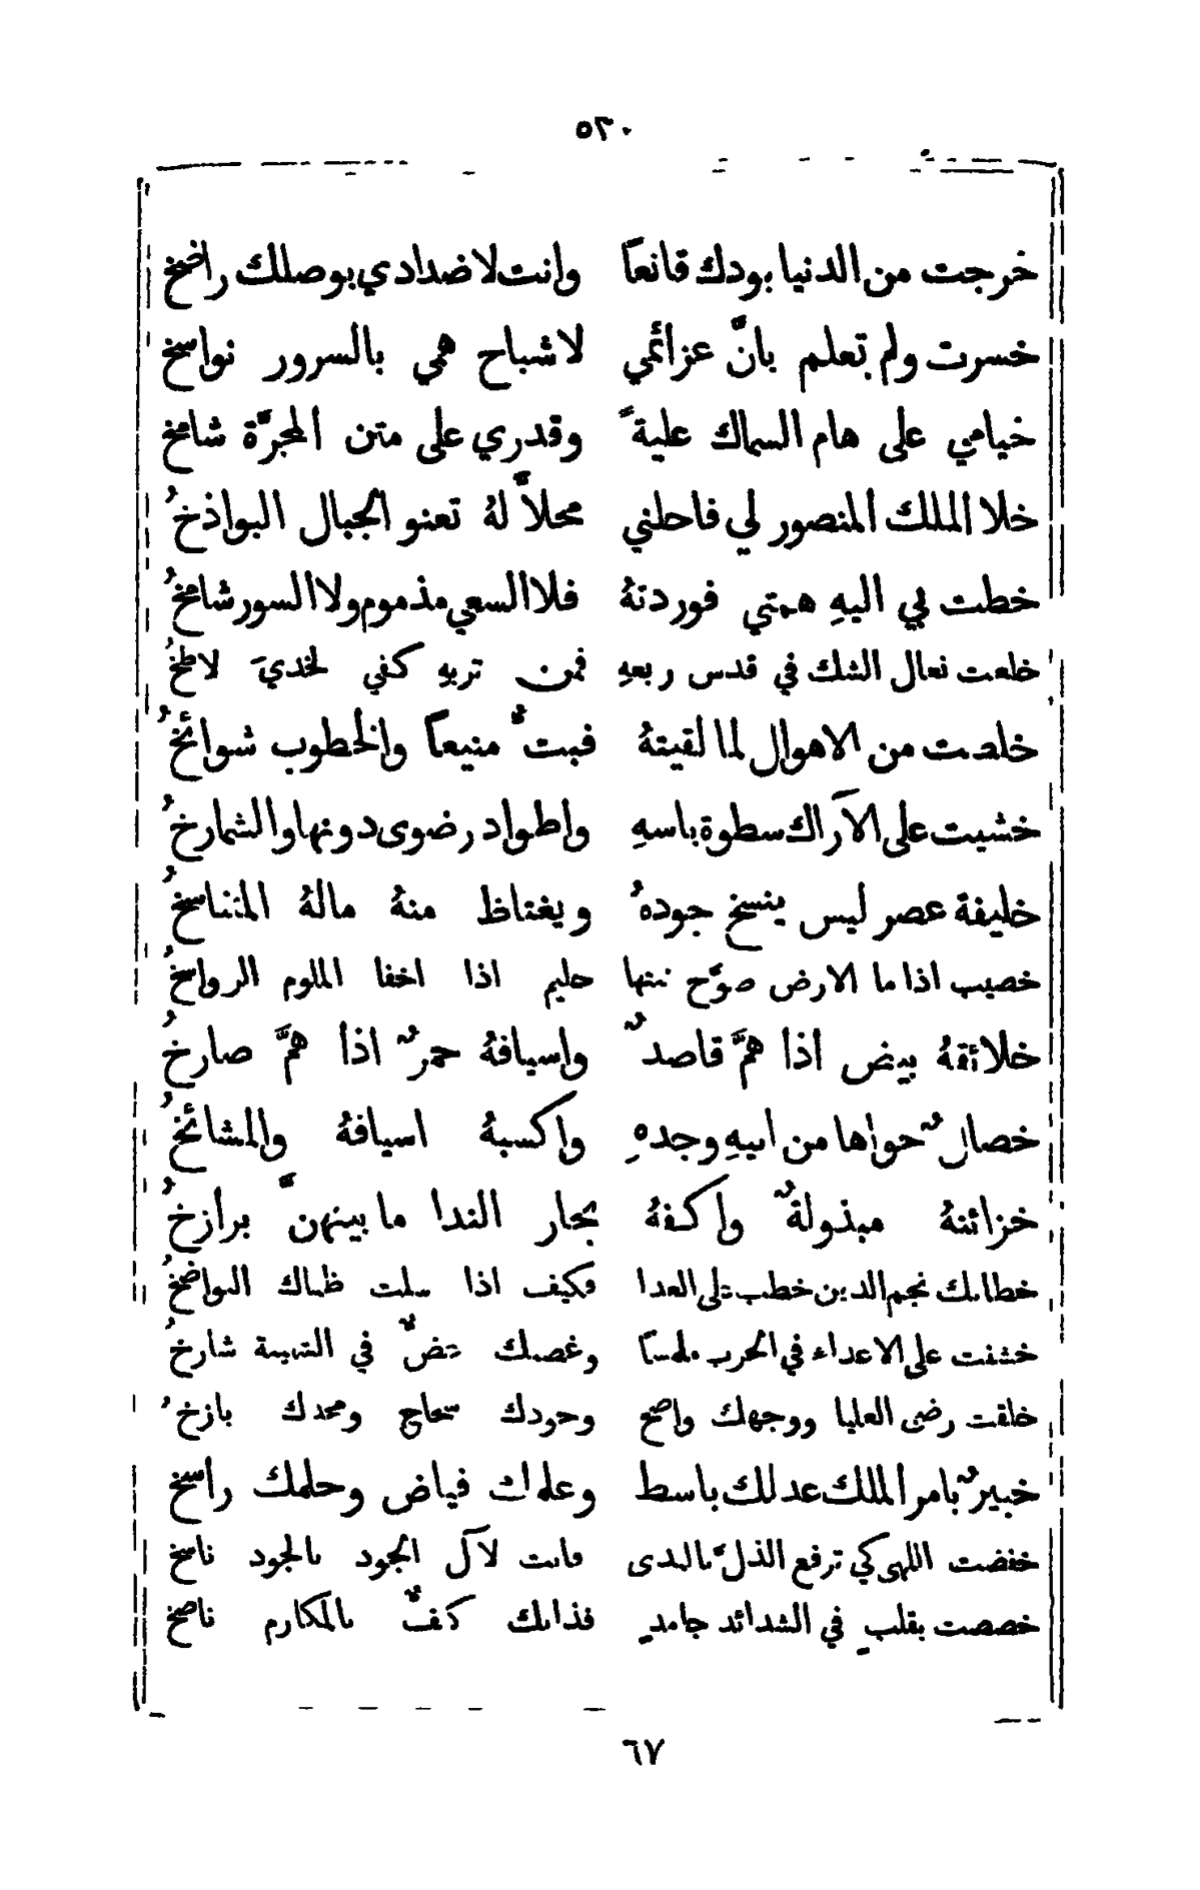 ٥٣٠
خرجت من الدنيا بودك قانعاً وانت لاضدادي بوصلك راضخ
خسرت ولم تعلم بانَّ عزائمي لاشباح همي بالسرور نواسخ
خيامي على هام السماك عليةً وقدري على متن المجرَّة شامخ
خلا الملك المنصور لي فاحلني محلاًّ لهُ تعنو الجبال البواذخُ
خطت بي اليهِ همتي فوردتهُ فلا السعي مذموم ولا السور شامخُ
خلعت نعال الشك في قدس ربعهِ فمن تربهِ كفي لخديَ لاطخُ
خلصت من الاهوال لما لقيتهُ فبتُّ منيعاً والخطوب شوائخُ
خشيت على الآراك سطوة باسهِ واطواد رضوى دونها والشمارخُ
خليفة عصر ليس ينسخ جودهُ ويغتاظ منهُ مالهُ المتناسخُ
خصيب اذا ما الارض صوَّح نبتها حليم اذا اخفا الملوم الرواسخُ
خلائقهُ بيض اذا همَّ قاصدٌ واسيافهُ حمرٌ اذا همَّ صارخُ
خصالٌ حواها من ابيهِ وجدهِ واكسبهُ اسيافهُ والمشائخُ
خزائنهُ مبذولةٌ واكفهُ بحار الندا ما بينهنَّ برازخُ
خطابك نجم الدين خطب على العدا فكيف اذا سلت ظباك النواضخُ
خشنت على الاعداء في الحرب ملمساً وغصنك غضٌّ في الشبيبة شارخُ
خلقت رضي العليا ووجهك واضح وجودك سحاح ومجدك بازخُ
خبيرٌ بامر الملك عدلك باسط وعلمك فياض وحلمك راسخ
خفضت اللهى كي ترفع الذلَّ بالندى فانت لآل الجود بالجود ناسخ
خصصت بقلبٍ في الشدائد جامدٍ فذابك كفٌّ بالمكارم ناضخ
٦٧